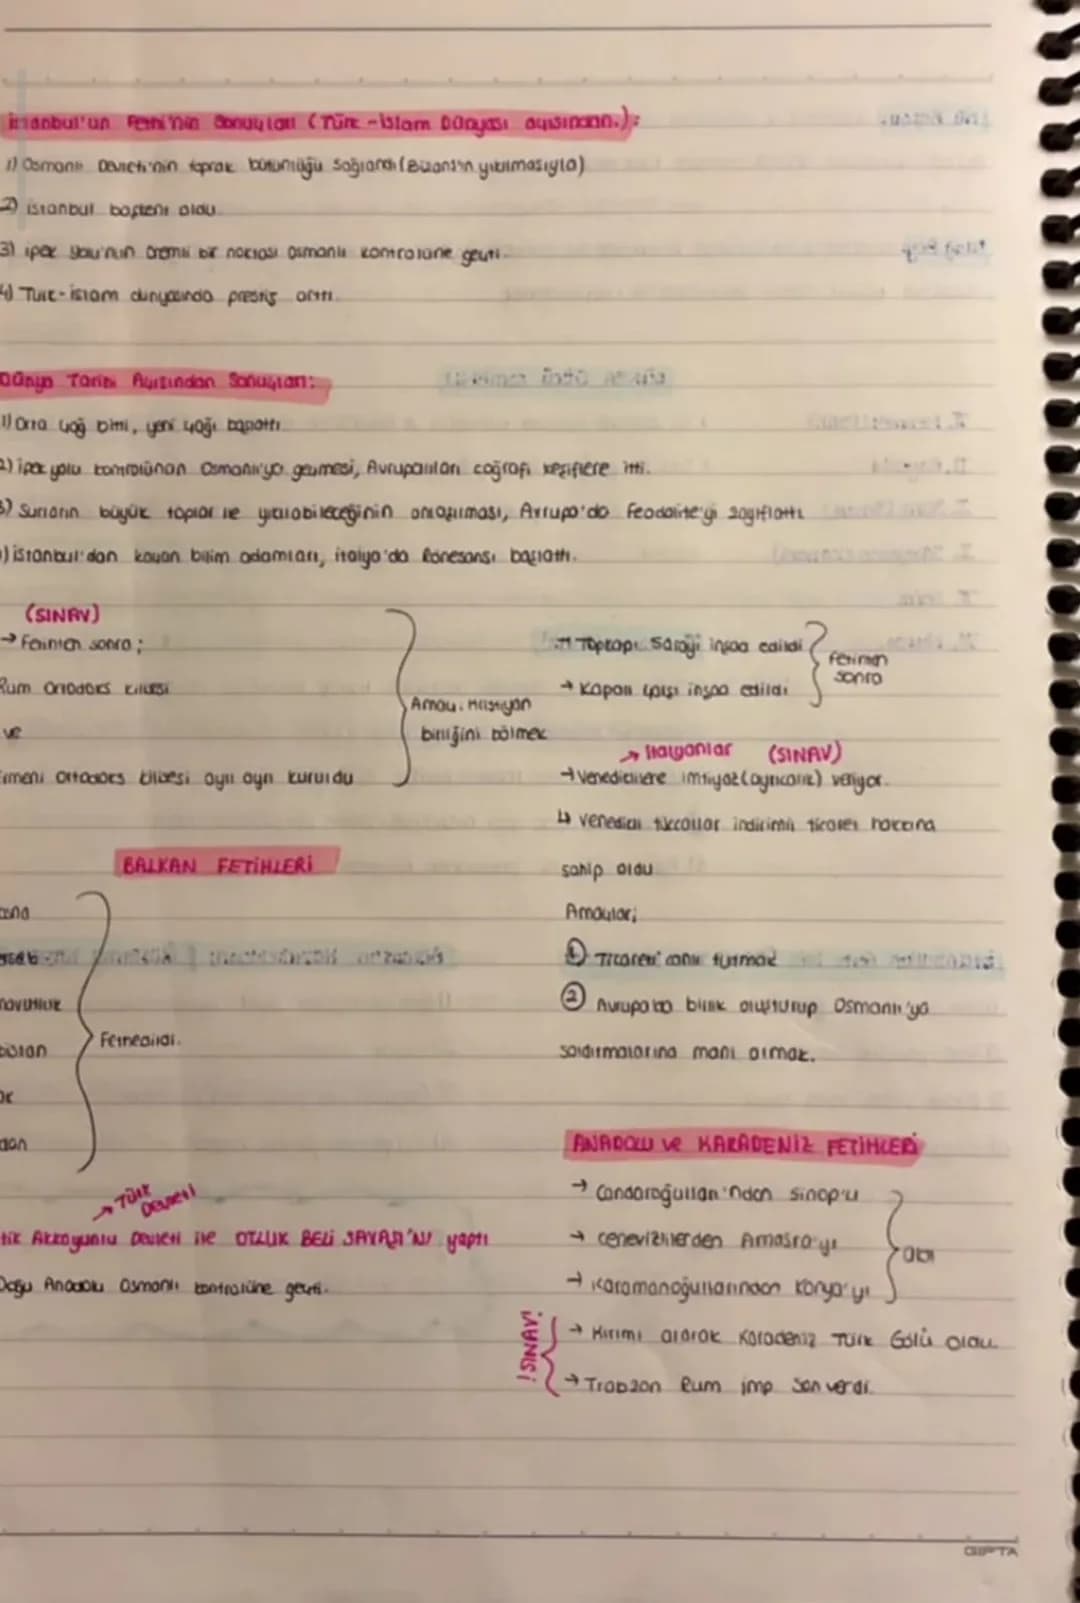 İstanbul'un Fethi'nin Sonuçları (Türk-İslam Dünyası açısından.):
1) Osmanlı Devleti'nin toprak bütünlüğü sağlandı (Bizans'ın yıkılmasıyla)
2) istanbul başkent oldu
3) ipek yolu'nun önemli bir noktası Osmanlı kontrolüne geçti.
4) Türk-islam dünyasında prestij arttı.
Dünya Tarihi Açısından Sonuçları:
1) Orta çağ bitti, yeni çağı başlattı
2) ipek yolu kontrolünün Osmanlı'ya geçmesi, Avrupalıları coğrafi keşiflere itti.
3) Surların büyük toplar ile yıkılabileceğinin anlaşılması, Avrupa'da Feodalite'yi zayıflattı
) istanbul'dan kaçan bilim adamları, italya'da Rönesansı başlattı.
(SINAV)
→ Fetihten sonra;
Rum Ortodoks Kilisesi
ve
Ermeni Ortodoks kilisesi ayrı ayrı kuruldu
Amaç: Hristiyan
birliğini bölmek
→ Topkapı Sarayı inşaa edildi
→ Kapalı çarşı inşaa edildi
Fetihten
sonra
→ İtalyanlar (SINAV)
→ Venediklilere imtiyaz (ayrıcalık) veriyor.
↳ Venedikli tüccarlar indirimli ticaret hakkına
sahip oldu
Amaçları;
① Ticareti canlı tutmak
② Avrupa'da birlik oluşturup Osmanlı'ya
saldırmalarına mani olmak.
BALKAN FETİHLERİ
navutluk
bistan
dan
Fethedildi.
→ Türk
Devleti
tik Akkoyunlu Devleti ile OTLUK BELİ SAVAŞI'NI yaptı
Doğu Anadolu Osmanlı kontrolüne geçti.
ANADOLU ve KARADENİZ FETİHLERİ
→ Candaroğulları'ndan Sinop'u
→ Cenevizlilerden Amasra'yı
→ Karamanoğullarından Konya'yı
aldı
!SINAV!
→ Kırımı alarak Karadeniz Türk Gölü oldu.
→ Trabzon Rum imp son verdi.
GIPTA